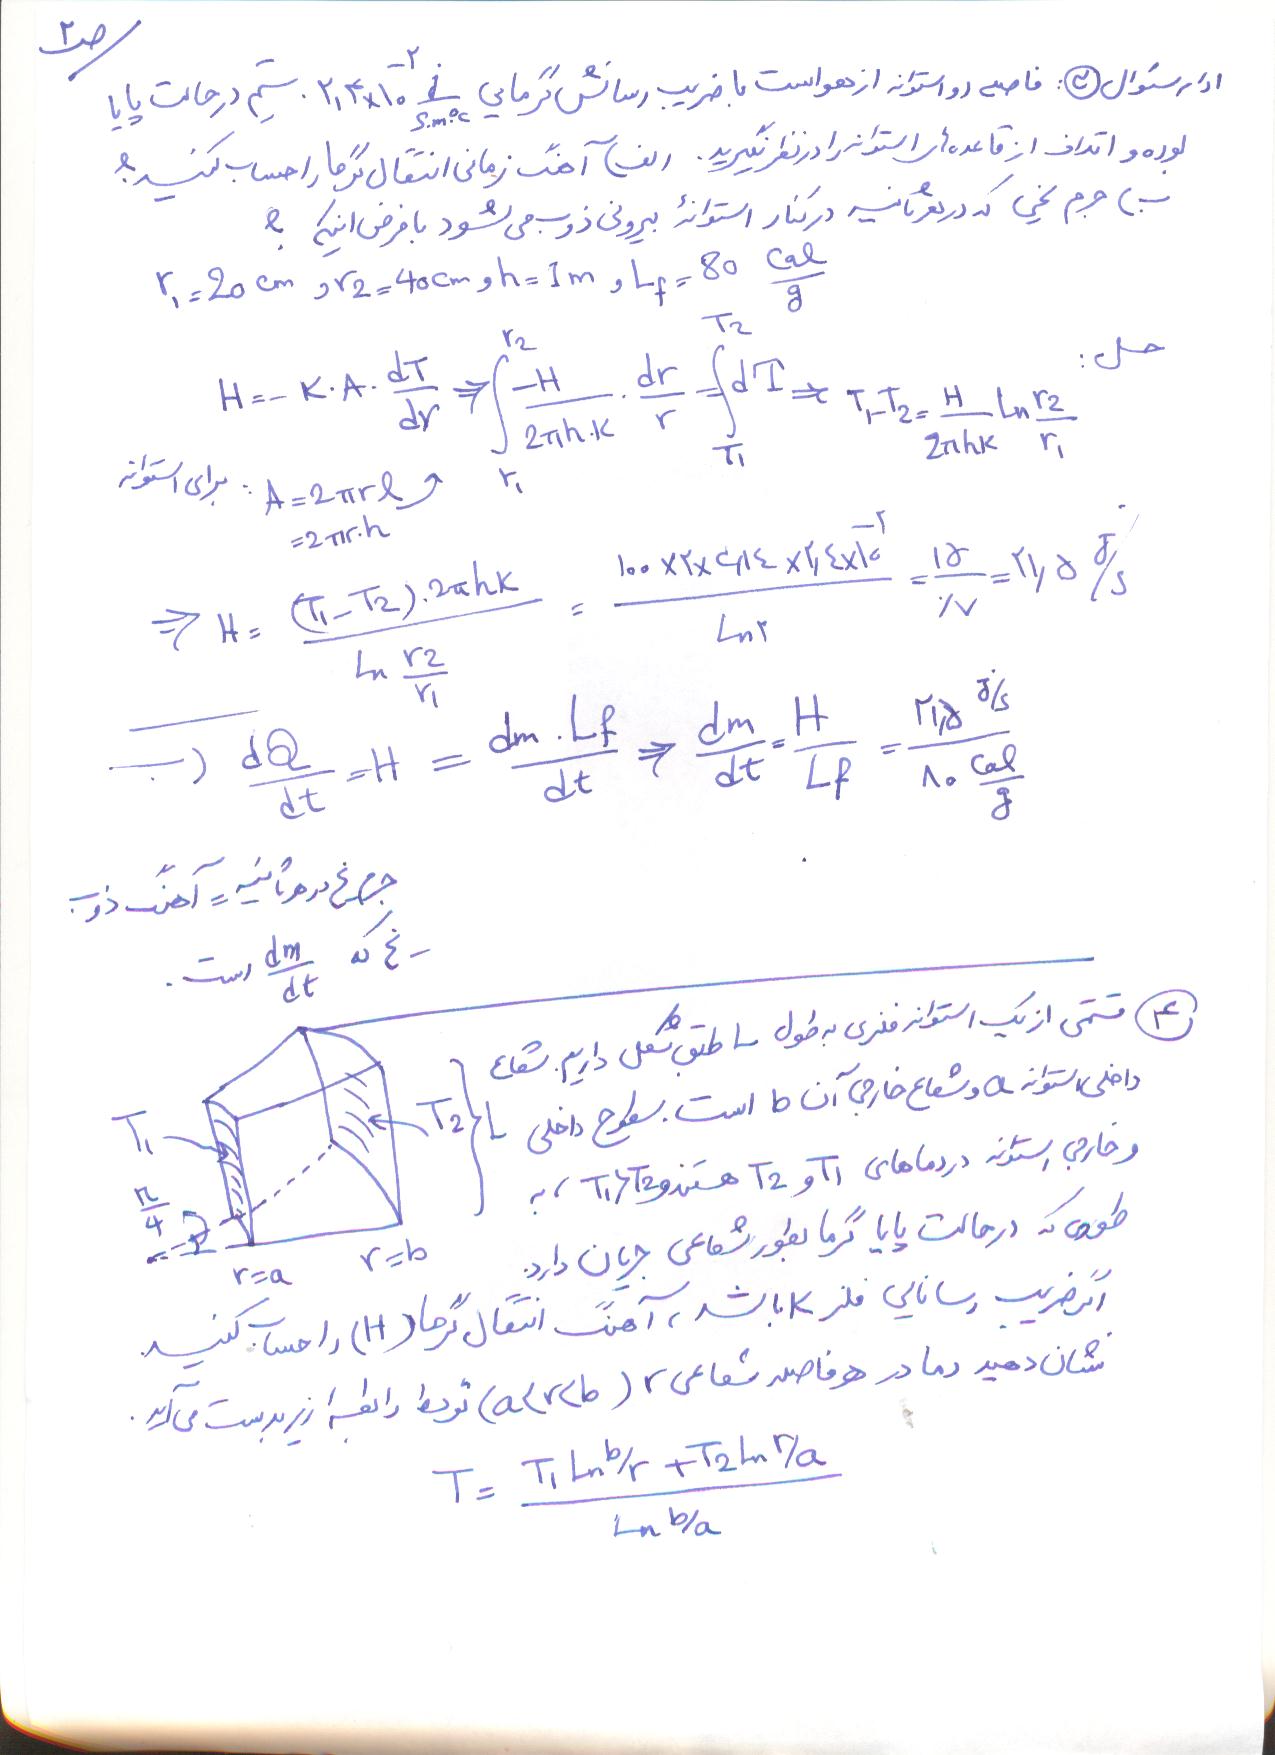 ص۲
ادامه سئوال ۳: فاصله دو استوانه از هواست با ضریب رسانش گرمایی ۲٫۴×۱۰^-۲ J/s.m.°c . سیستم در حالت پایا
بوده و اتلاف از قاعده‌های استوانه را در نظر نگیرید. الف) آهنگ زمانی انتقال گرما را حساب کنید؟
ب) جرم یخی که در هر ثانیه در کنار استوانهٔ بیرونی ذوب می شود با فرض اینکه ؟
r₁=20 cm و r2=40cm و h=1m و Lf=80 Cal/g
حل:
H=-K.A.dT/dr ⇒ ∫_{r₁}^{r2} -H/2πh.K . dr/r = ∫_{T₁}^{T2} dT ⇒ T₁-T2=H/2πhK Ln r2/r₁
برای استوانه: A=2πrl
=2πr.h
⇒ H= (T₁-T2).2πhK / Ln r2/r₁ = ۱۰۰×۲×۳٫۱٤×۲٫٤×۱۰^-۲ / Ln۲ = ۱۵/٫۷ = ۲۱٫۵ J/s
ب) dQ/dt =H = dm.Lf/dt ⇒ dm/dt = H/Lf = ۲۱٫۵ J/s / ۸۰ Cal/g
جرم یخ در هر ثانیه = آهنگ ذوب
یخ که dm/dt است.
۴ قسمتی از یک استوانه فلزی به طول L طبق شکل داریم. شعاع
داخلی استوانه a و شعاع خارجی آن b است. سطوح داخلی
و خارجی استوانه در دماهای T1 و T2 هستند و T₁>T2، به
طوری که در حالت پایا گرما بطور شعاعی جریان دارد.
اگر ضریب رسانایی فلز K باشد، آهنگ انتقال گرما (H) را حساب کنید.
نشان دهید دما در هر فاصله شعاعی r (a<r<b) توسط رابطهٔ زیر بدست می آید.
T= T₁Ln b/r +T2Ln r/a / Ln b/a
T₁
T2
L
π/4
r=a
r=b